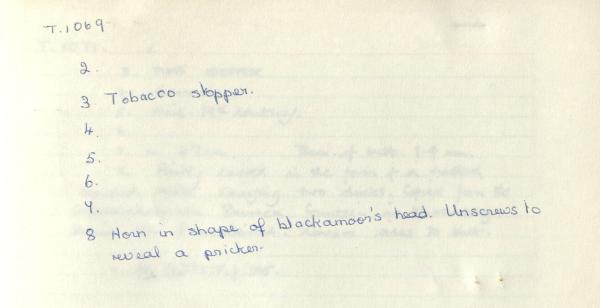 T.1069
2.
3. Tobacco stopper.
4.
5.
6.
7.
8 Horn in shape of blackamoor's head. Unscrews to
reveal a pricker.